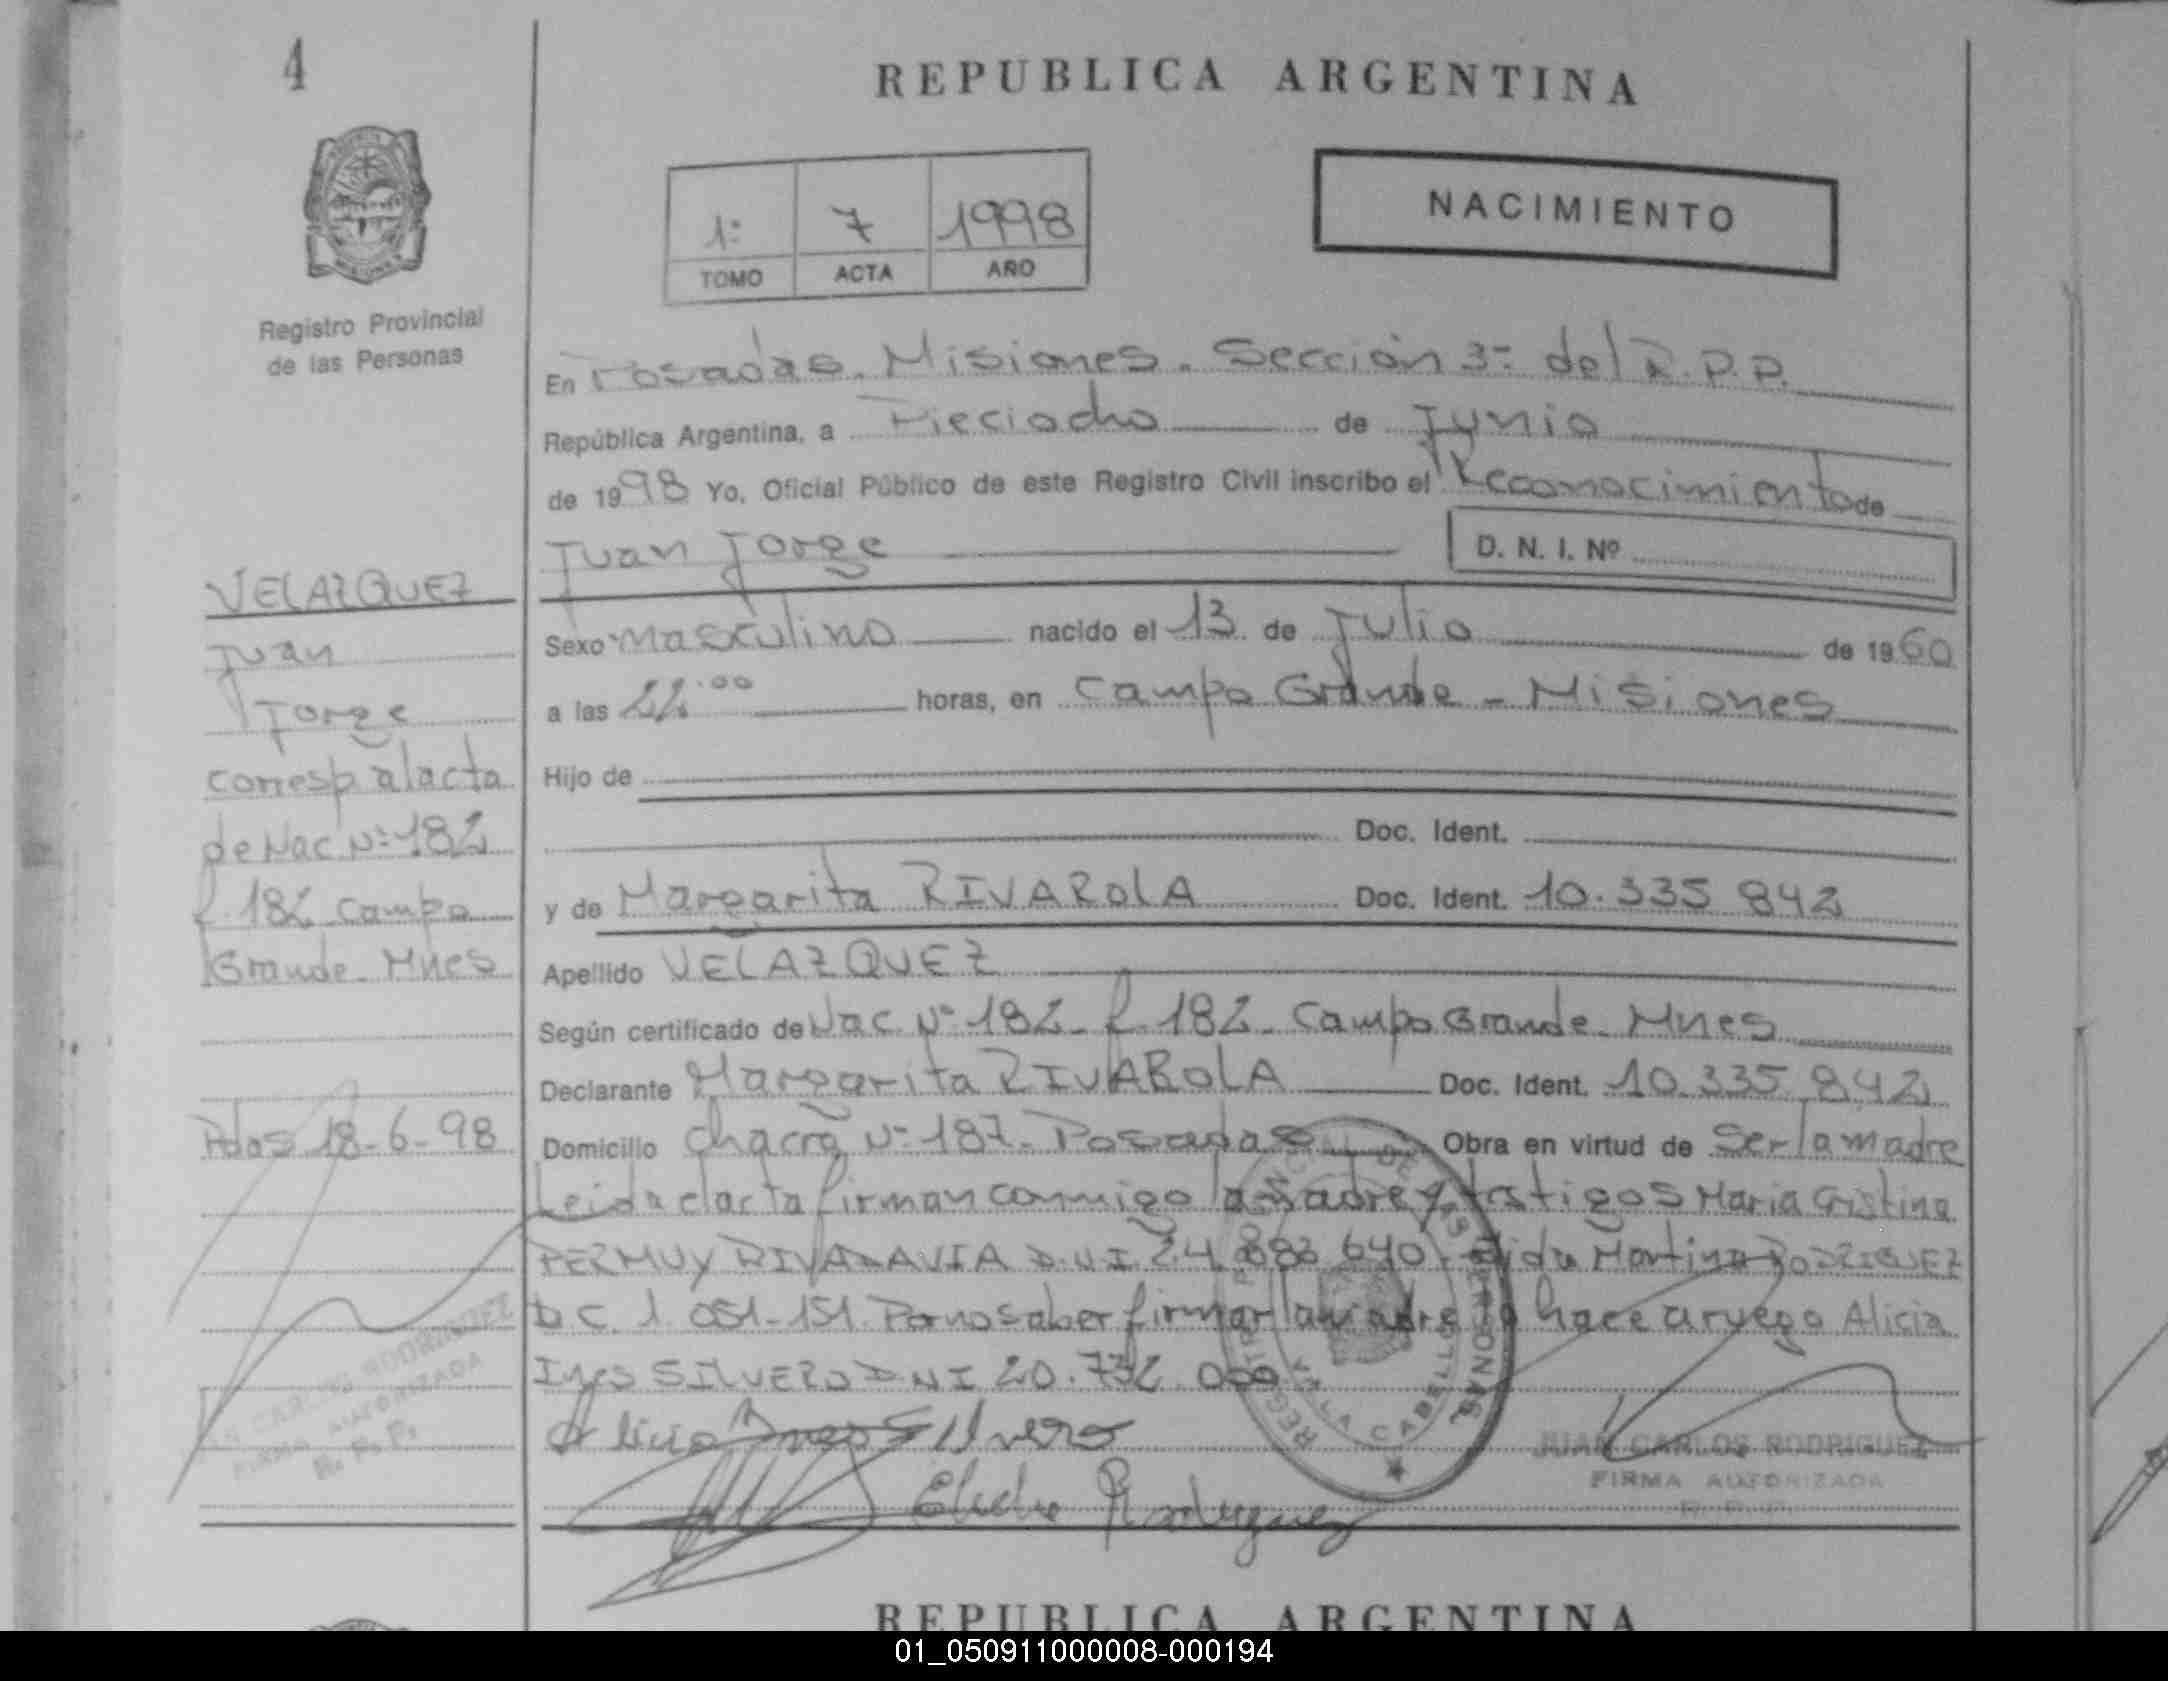 4
REPUBLICA ARGENTINA
Registro Provincial
de las Personas
1º 7 1998
TOMO ACTA AÑO
NACIMIENTO
En Posadas. Misiones. Sección 3º del R.P.P.
República Argentina, a Dieciocho de Junio
de 1998 Yo, Oficial Público de este Registro Civil inscribo el Reconocimiento de
Juan Jorge D. N. I. Nº
Sexo Masculino nacido el 13 de Julio de 1960
a las 22.00 horas, en Campo Grande - Misiones
Hijo de
Doc. Ident.
y de Margarita RIVAROLA Doc. Ident. 10.335 842
Apellido VELAZQUEZ
Según certificado de Nac. Nº 182 - f. 182 - Campo Grande - Mnes
Declarante Margarita RIVAROLA Doc. Ident. 10.335.842
Domicilio Chacra Nº 187 - Posadas Obra en virtud de Ser la madre
Leida el acta firman conmigo la madre y testigos Maria Cristina
PERMUY RIVADAVIA D.N.I. 24 640 Martina RODRIGUEZ
1 051-151 Por no saber firmar la madre lo hace a ruego Alicia
Ines SILVERO D.N.I 20.732
Alicia Ines Silvero
Rodriguez
VELAZQUEZ
Juan
Jorge
corresp al acta
de Nac Nº 182
f. 182 Campo
Grande - Mnes
Pdas 18-6-98
JUAN CARLOS RODRIGUEZ
FIRMA AUTORIZADA
R. P. P.
JUAN CARLOS RODRIGUEZ
FIRMA AUTORIZADA
R. P. P.
REGISTRO PROVINCIAL DE LAS PERSONAS
VILLA CABELLO
REPUBLICA ARGENTINA
01_050911000008-000194